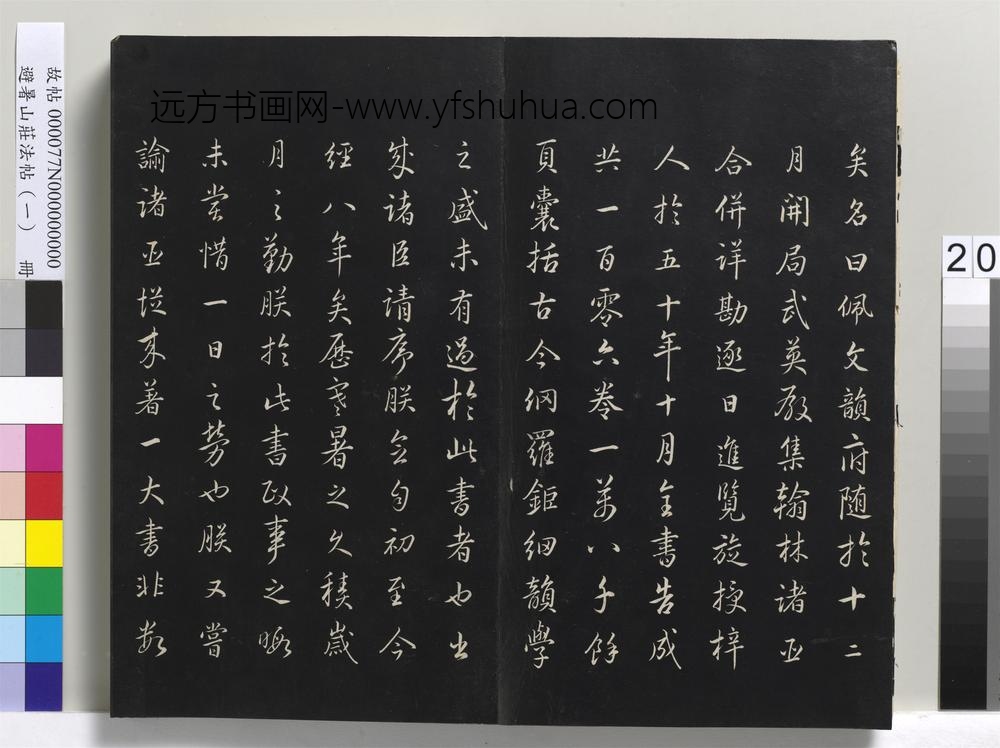 远方书画网-www.yfshuhua.com
故帖 000077N000000000
避暑山莊法帖（一） 冊
20
矣名曰佩文韻府随於十二
月開局武英殿集翰林諸臣
合併詳勘逐日進覽旋授梓
人於五十年十月全書告成
共一百零六卷一萬八千餘
頁囊括古今網羅鉅細韻學
之盛未有過於此書者也書
成諸臣請序朕念自初至今
經八年矣歷寒暑之久積歲
月之勤朕於此書政事之暇
未嘗惜一日之勞也朕又嘗
諭諸臣從來著一大書非數